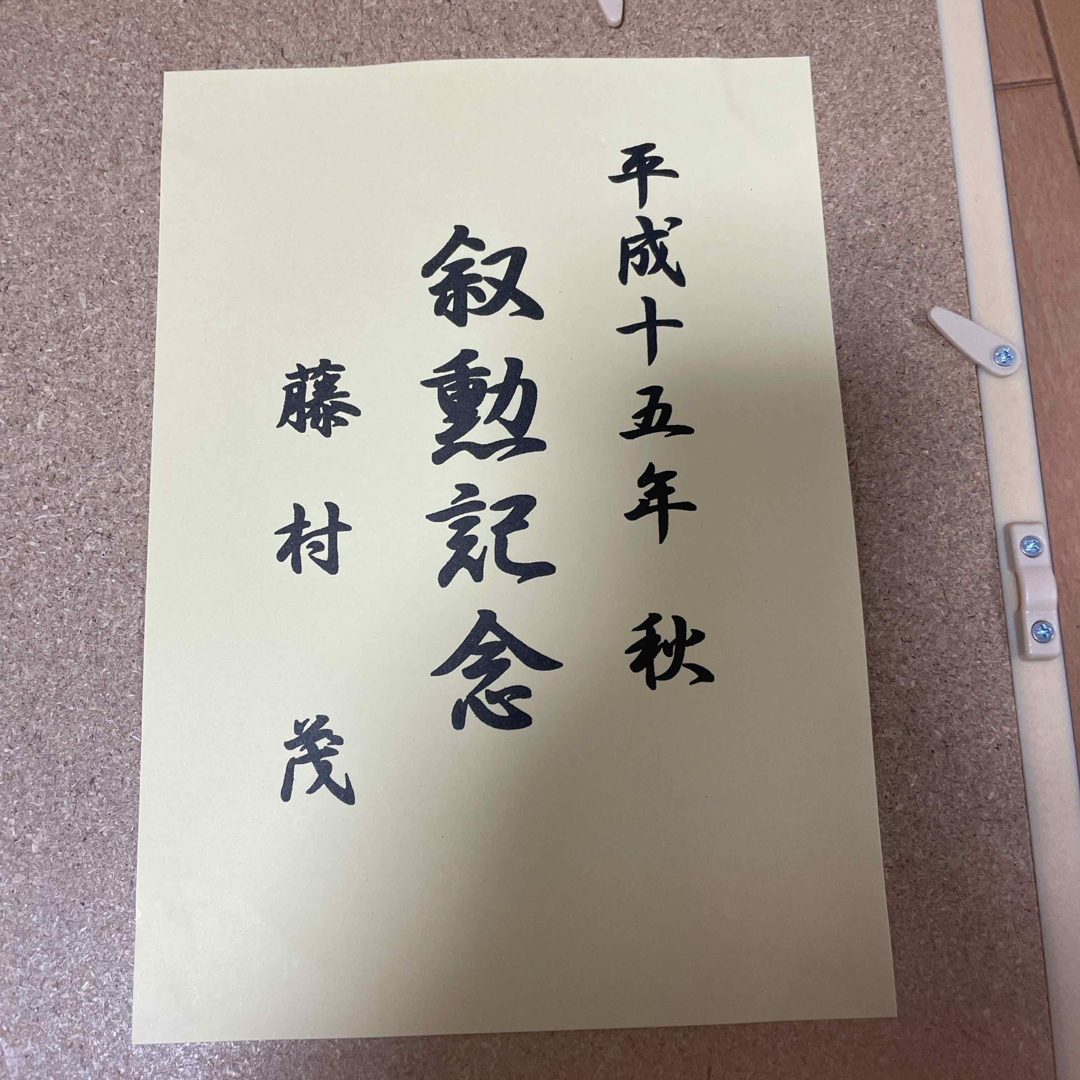 平成十五年 秋
叙勲記念
藤村 茂